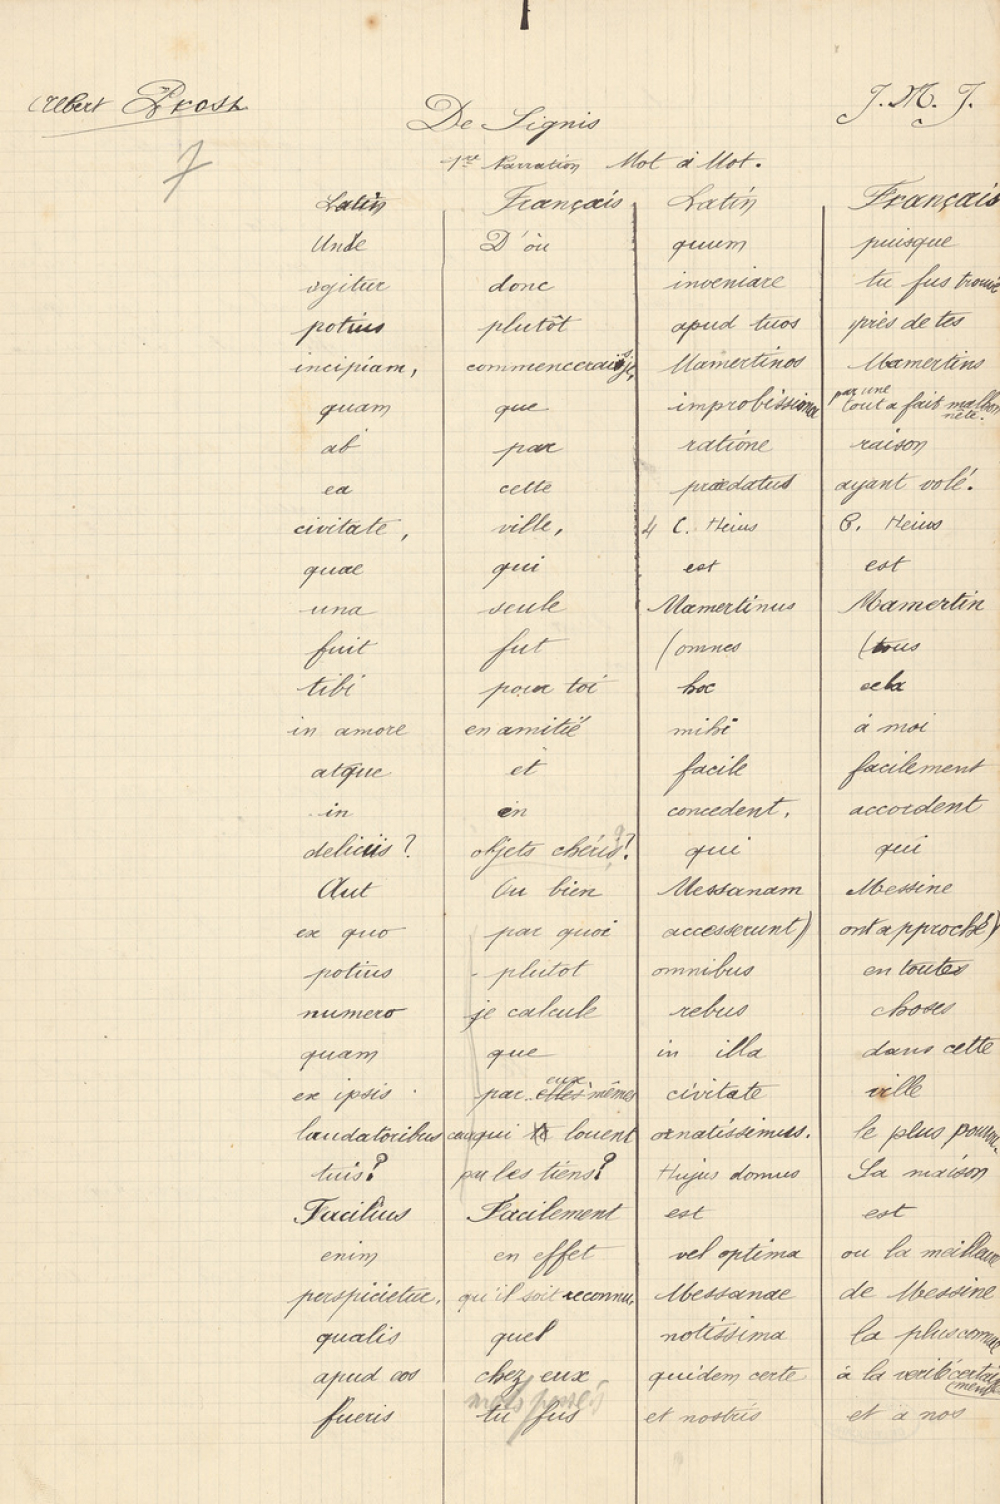 Albert Prost
J. M. J.
De Signis
7
1re Narration Mot à Mot.
Latin Français Latin Français
Unde D'où quum puisque
igitur donc inveniare tu fus trouvé
potius plutôt apud tuos près de tes
incipiam, commencerais je, Mamertinos Mamertins
quam que improbissima par une tout a fait malhonnete.
ab par ratione raison
ea cette praedatus ayant volé.
civitate, ville, 4 C. Heius C. Heius
quae qui est est
una seule Mamertinus Mamertin
fuit fut (omnes (tous
tibi pour toi hoc cela
in amore en amitié mihi à moi
atque et facile facilement
in en concedent, accordent
deliciis? objets chéris? qui qui
Aut Ou bien Messanam Messine
ex quo par quoi accesserunt) ont approché)
potius plutot omnibus en toutes
numero je calcule rebus choses
quam que in illa dans cette
ex ipsis par elles eux mêmes civitate ville
laudatoribus qui louent ornatissimus. le plus
tuis? les tiens? Hujus domus Sa maison
Facilius Facilement est est
enim en effet vel optima ou la meilleure
perspicietur, qu'il soit reconnu, Messanae de Messine
qualis quel notissima la plus connue
apud eos chez eux quidem certe à la verité certainement
fueris tu fus et nostris et a nos